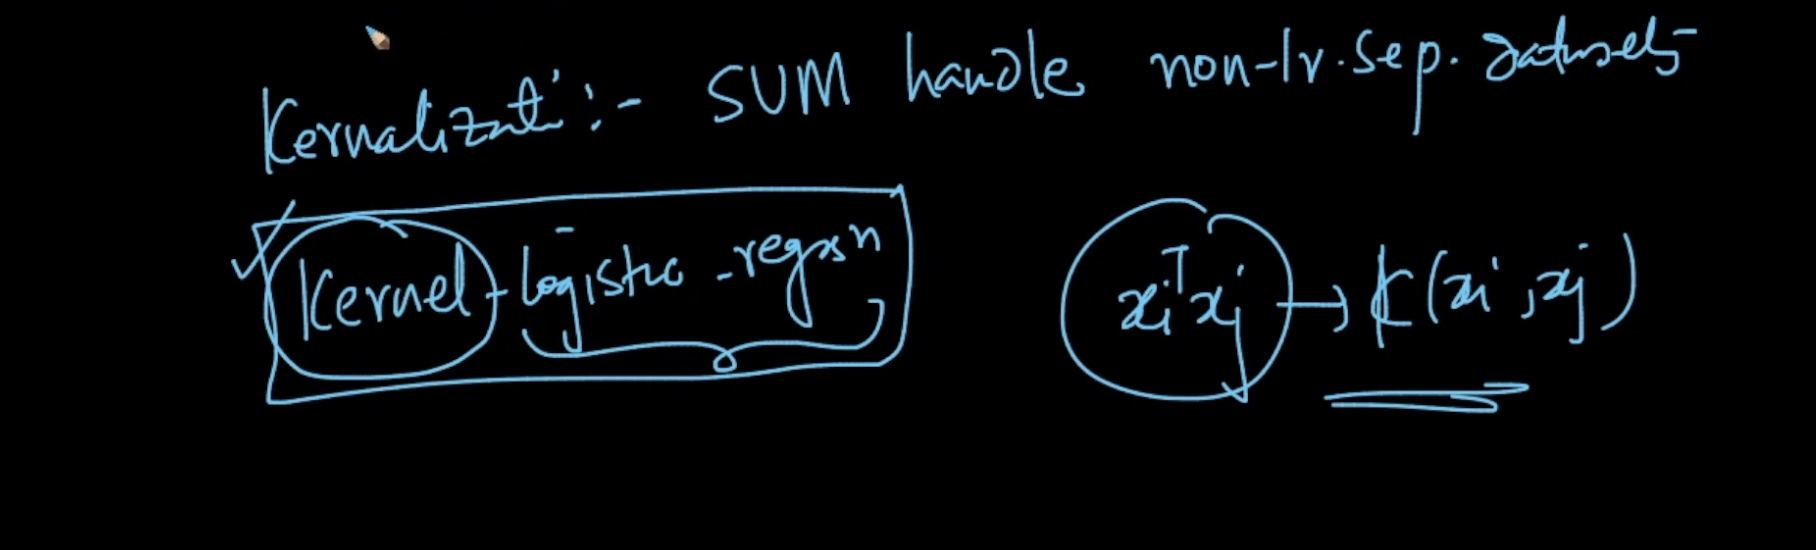 Kernalizatn :- SVM handle non-lr. sep. datasets
Kernel-logistic-regrsn xiᵀxj → K(xi, xj)